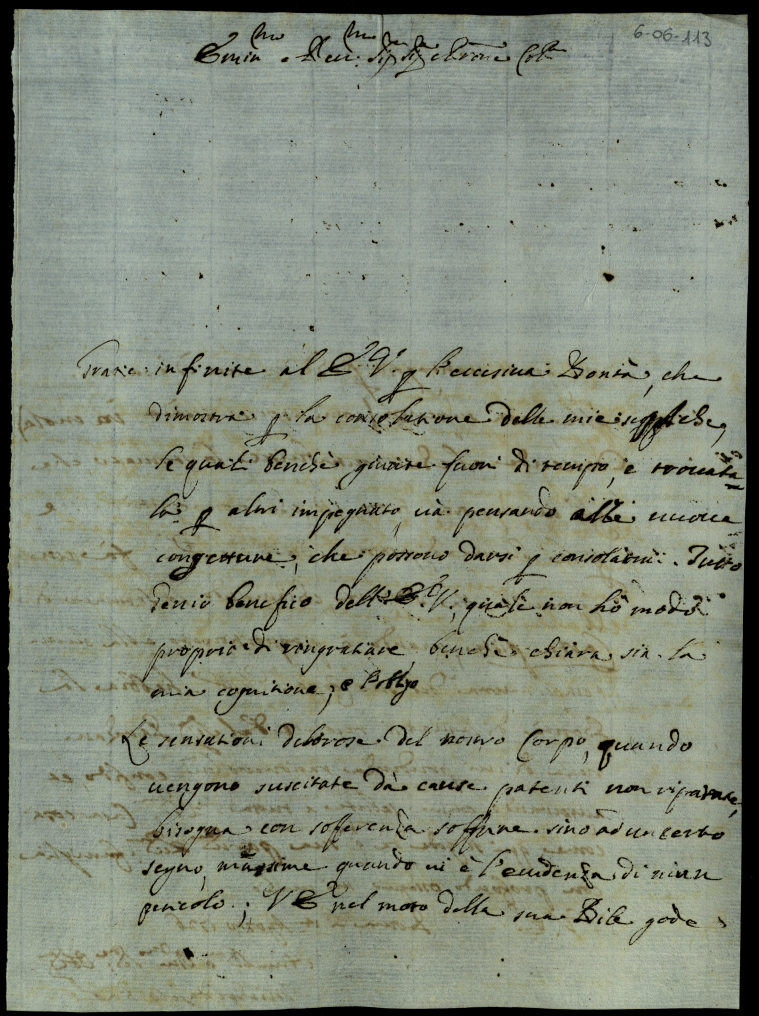 6-06-113
Emin.mo e Rev.mo Sig. Sig.
Gratie infinite al E. V. p l'eccesiva Bontà, che
dimostra p la consolatione delle mie supliche,
le quali benchè giunte fuori di tempo, e trovata
la p altri impegnato, và pensando alle nuove
congetture, che possono darsi p consolarmi. Tutto
Genio benefico dell'E. V., quale non hò modo
proprio di ringratiare benchè chiara sia la
mia cognitione, e
Le sensationi dolorose del nostro Corpo, quando
vengono suscitate dà cause patenti non riparate,
bisogna con sofferenza soffrire sino ad un certo
segno, massime quando vi è l'evidenza di niun
pericolo; V E nel moto della sua Bile gode